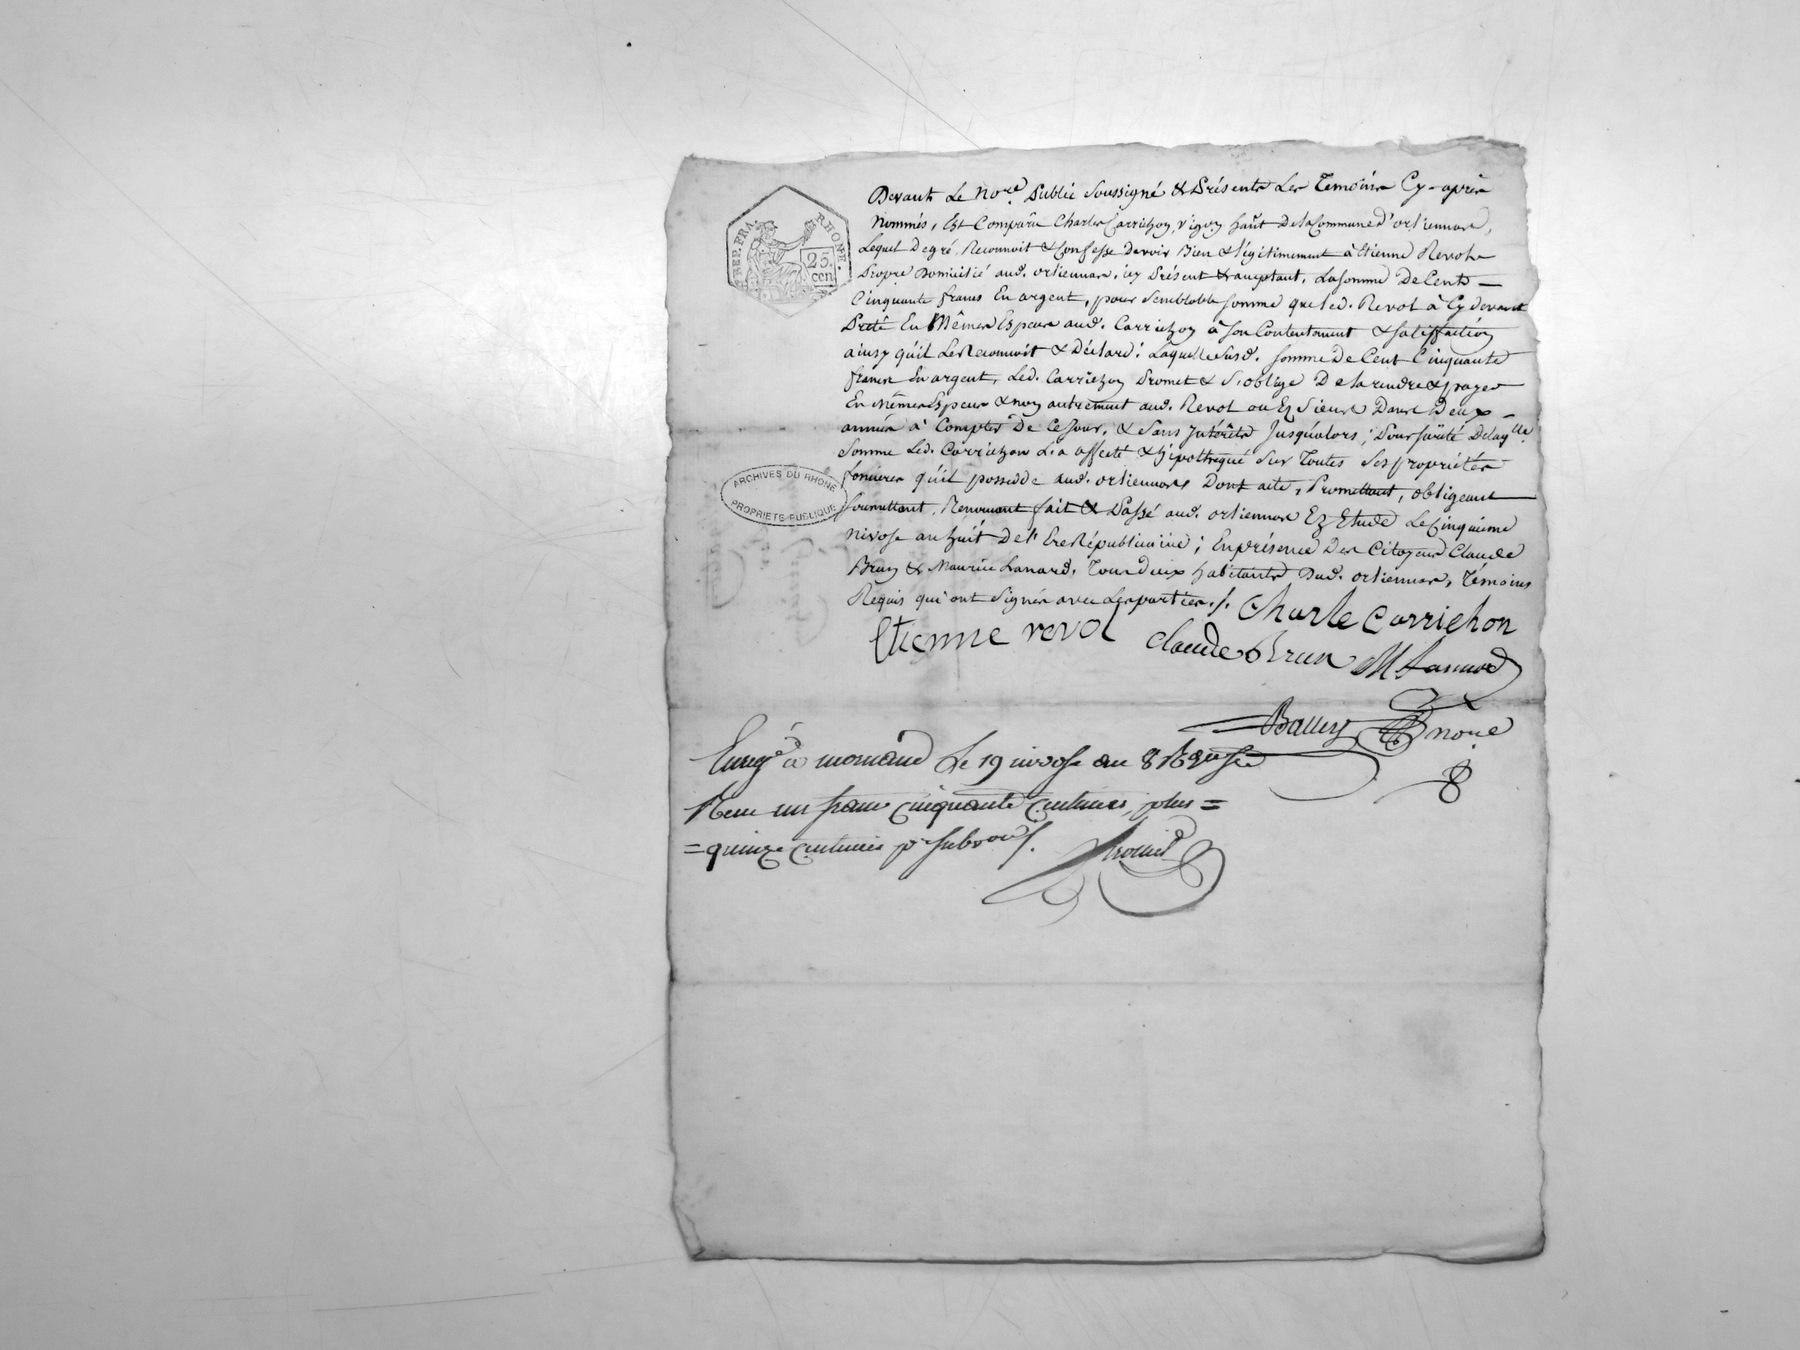 REP. FRA. RHONE.
25.
cen
Devant Le no.re Public Soussigné & Présents Les Temoins Cy-après
Nommés, Est Comparû Charles Carrichon, vigon haut De la Commune d'orliennas,
Lequel De gré, Reconnoit & Confesse Devoir Bien & légitimement à Etienne Revol
Propre Domicilié aud. orliennas, icy Présent & acceptant, La somme De Cent
Cinquante francs En argent, pour Semblable Somme que led. Revol à Cy devant
Prêté En Mêmes Especes aud. Carrichon à Son Contentement & Satisffaction
ainsy qu'il Le Reconnoit & Déclare; Laquelle susd. Somme De Cent Cinquante
francs En argent, Led. Carrichon Promet & S'oblige De la rendre & payer
En mêmes Especes & non autrement aud. Revol ou Ez Sieurs Dans Deux
années à Compter De Ce Jour, & Sans Intérêts Jusqu'alors; Pour Sûreté De laq.lle
Somme Led. Carrichon L'a affecté & hipothequé Sur Toutes Ses propriétés
foncieres qu'il possedde aud. orliennas Dont acte, Promettant, obligeant
Soumettant, Renonceant fait & Passé aud. orliennas Ez Etude Le Cinquieme
nivose an huit De l'Ere Républicaine; En présence Des Citoyens Claude
Brun & Maurice Lanard, Tous Deux habitants Dud. orliennas, Témoins
Requis qui ont Signés avec Les parties./.
Charle Carrichon
Etienne revol Claude Brun M Lanard
Ballley no.re
ARCHIVES DU RHONE
PROPRIETE PUBLIQUE
Enreg.é à mornand Le 19 nivose an 8 Rep
Recu un franc cinquante centimes, plus =
= quinze centimes p.r Subv.on /.